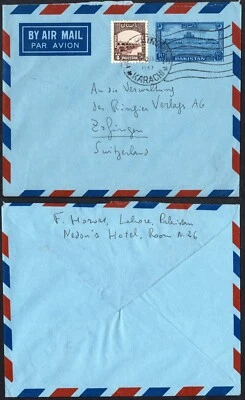 BY AIR MAIL
PAR AVION
PAKISTAN
KARACHI
PAKISTAN
An die Verwaltung
des Ringier Verlags AG
Zofingen
Switzerland
F. Horvat, Lahore, Pakistan
Nedou's Hotel, Room A-26